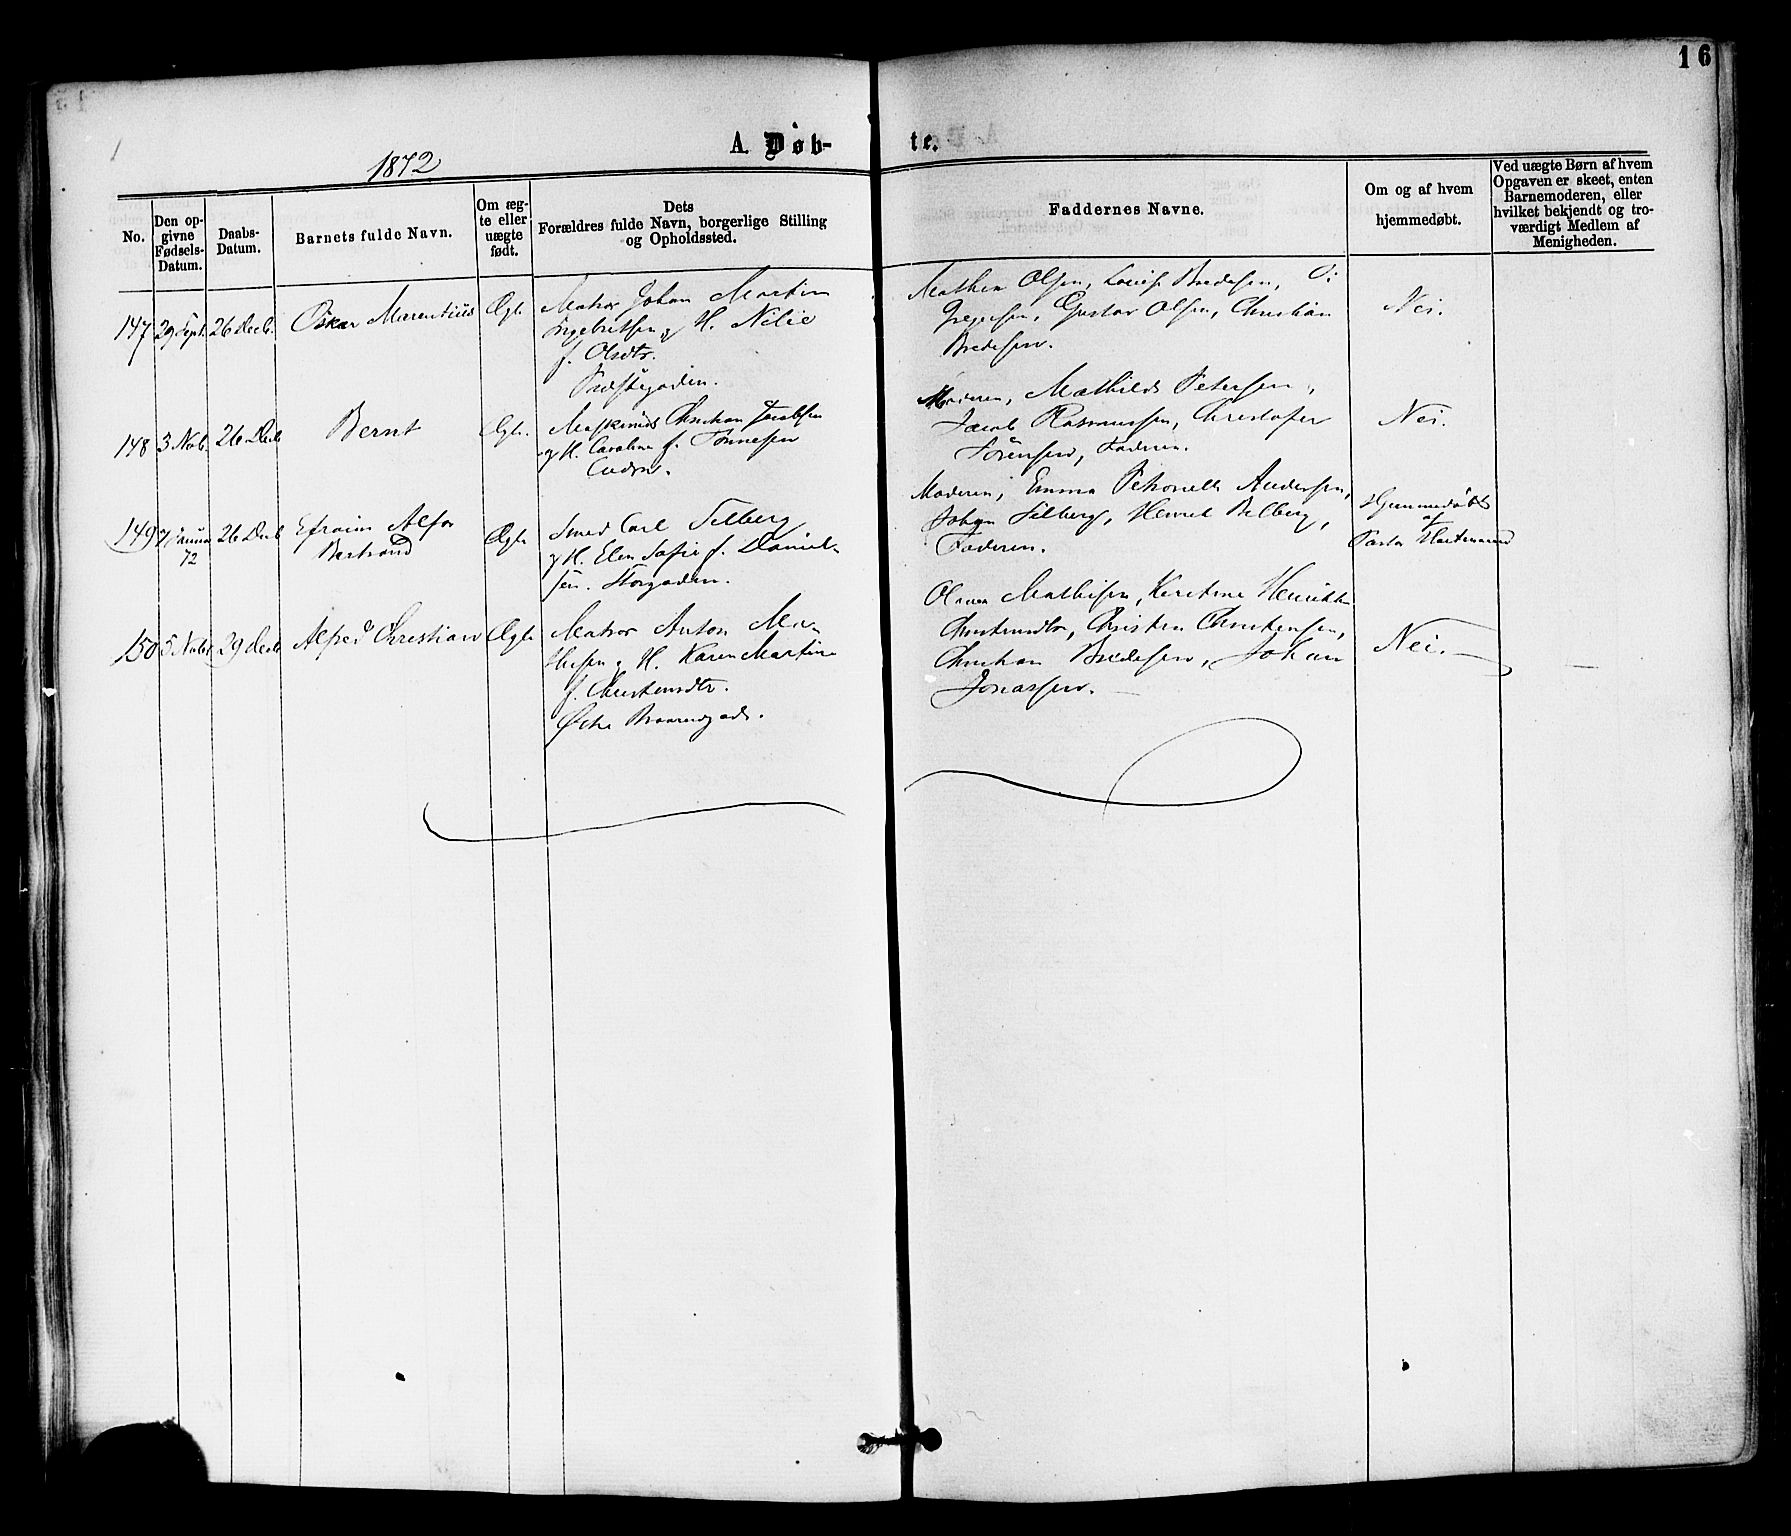 16
A. Døb-
te.
1872
No.
Den op-
givne
Fødsels-
Datum.
Daabs-
Datum.
Barnets fulde Navn.
Om æg-
te eller
uægte
født.
Dets
Forældres fulde Navn, borgerlige Stilling
og Opholdssted.
Faddernes Navne.
Om og af hvem
hjemmedøbt.
Ved uægte Børn af hvem
Opgaven er skeet, enten
Barnemoderen, eller
hvilket bekjendt og tro-
værdigt Medlem af
Menigheden.
147
29 Sept.
26 Decb.
Oskar Marentius
Ægte
Matros Johan Martin
Ingebritsen og H.
f. Olsdtr.
Olsen, Louise Bredesen,
Gregersen, Gustav Olsen, Christian
Bredesen.
Nei.
148
3 Novb.
26 Decb
Bernt
Ægte.
Christian Jacobsen
og H. Caroline f. Tønnesen
Moderen, Mathilde Petersen,
Jacob Rasmussen, Christofer
Sørensen, Faderen.
Nei.
149
72
26 Decb
Efraim
Bertrand
Ægte
Smed Carl Selberg
og H. Elen Sofie f. Daniel-
sen. Storgaden.
Moderen, Emma Petronelle Andersen,
Johan Selberg,
Faderen.
Hjemmedøbt
af
Pastor
150
5 Novb
29 Decb
Alfred Christian
Ægte
Matros Anton Ma-
thisen og H. Karen Martine
f. Christensdtr.
Mathisen, Kirstine Henrikke
Christensdtr, Christen Christensen,
Christian Bredesen, Johan
Jonassen.
Nei.